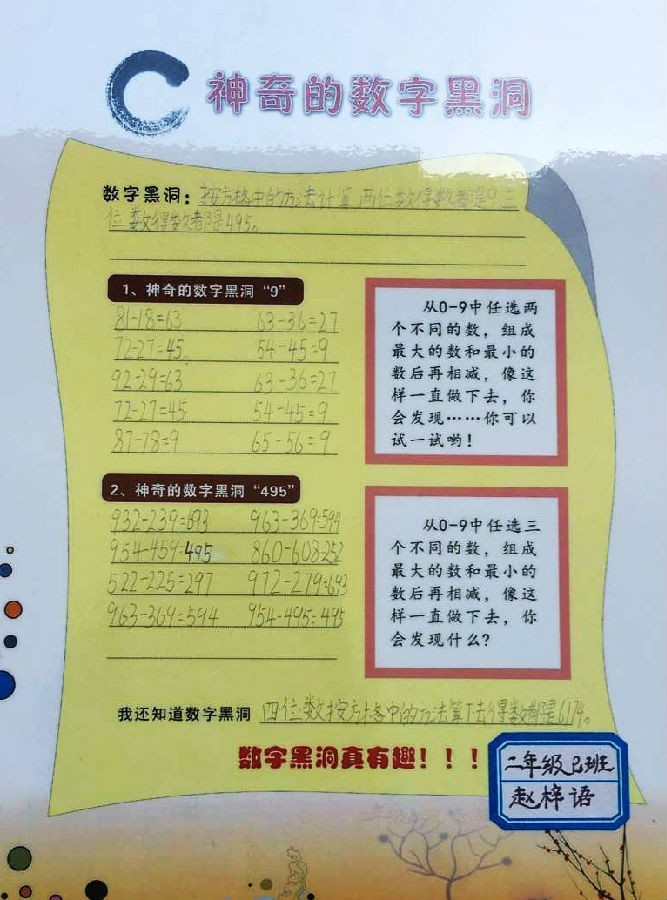 神奇的数字黑洞
数字黑洞：按方格中的方法计算,两位数得数都是9,三
位数得数都是495。
1、神奇的数字黑洞“9”
81-18=63 63-36=27
72-27=45 54-45=9
92-29=63 63-36=27
72-27=45 54-45=9
87-78=9 65-56=9
从0-9中任选两
个不同的数，组成
最大的数和最小的
数后再相减，像这
样一直做下去，你
会发现……你可以
试一试哟！
2、神奇的数字黑洞“495”
932-239=693 963-369=594
954-459=495 860-608=252
522-225=297 972-279=693
963-369=594 954-495=495
从0-9中任选三
个不同的数，组成
最大的数和最小的
数后再相减，像这
样一直做下去，你
会发现什么？
我还知道数字黑洞 四位数按方格中的方法算下去得数都是6174。
数字黑洞真有趣！！！
二年级巳班
赵梓语